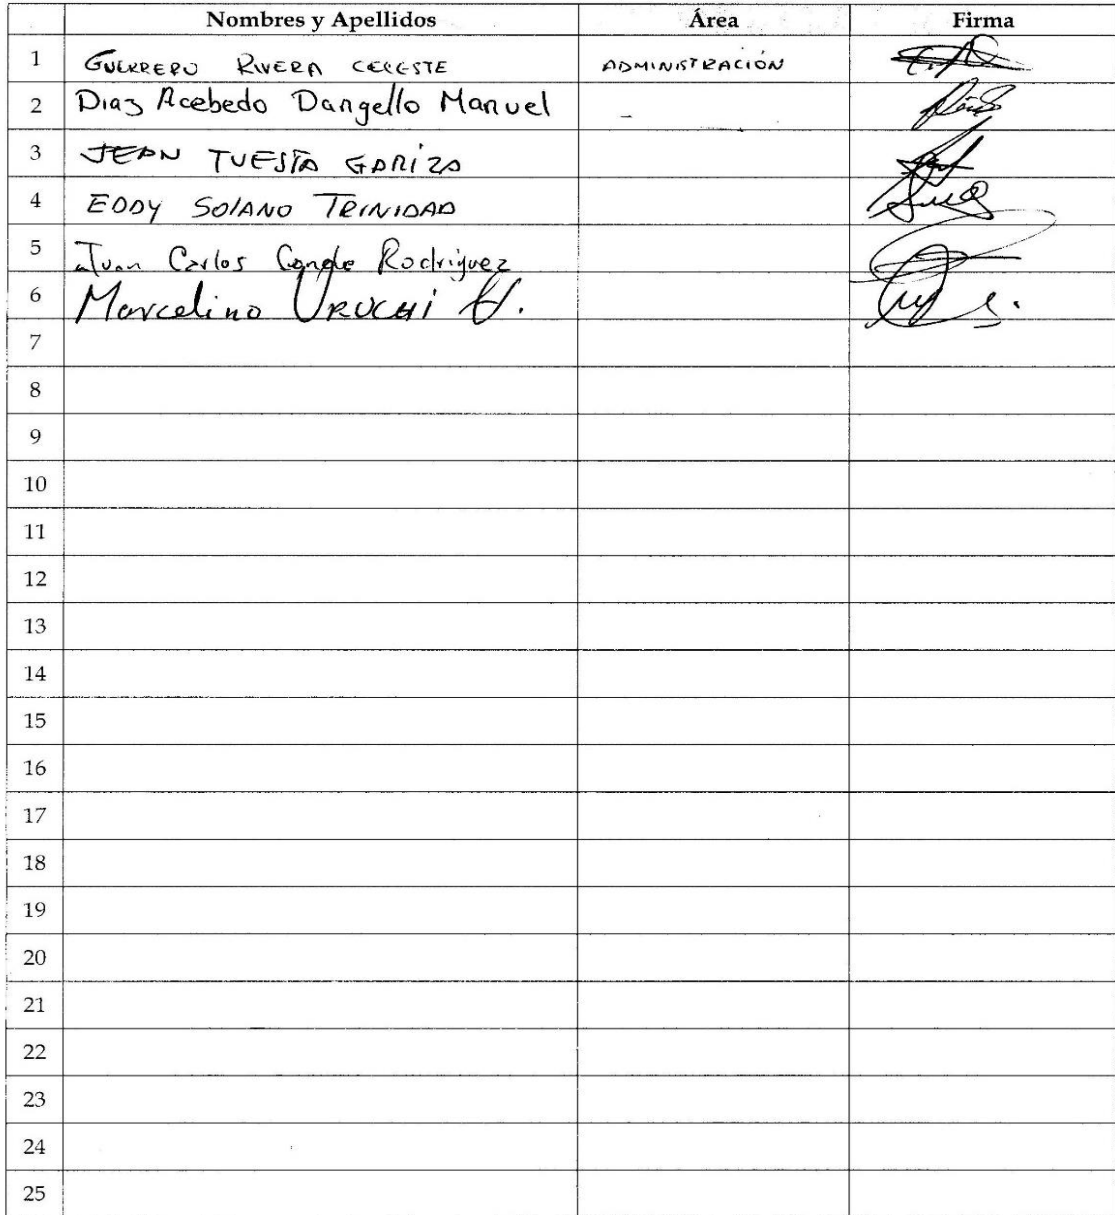 Nombres y Apellidos Área Firma
1 GUERRERO RIVERA CELESTE ADMINISTRACIÓN
2 Diaz Acebedo Dangello Manuel
3 JEAN TUESTA
4 EDDY SOLANO TRINIDAD
5 Juan Carlos Conde Rodriguez
6 Marcelino URUCHI H.
7
8
9
10
11
12
13
14
15
16
17
18
19
20
21
22
23
24
25